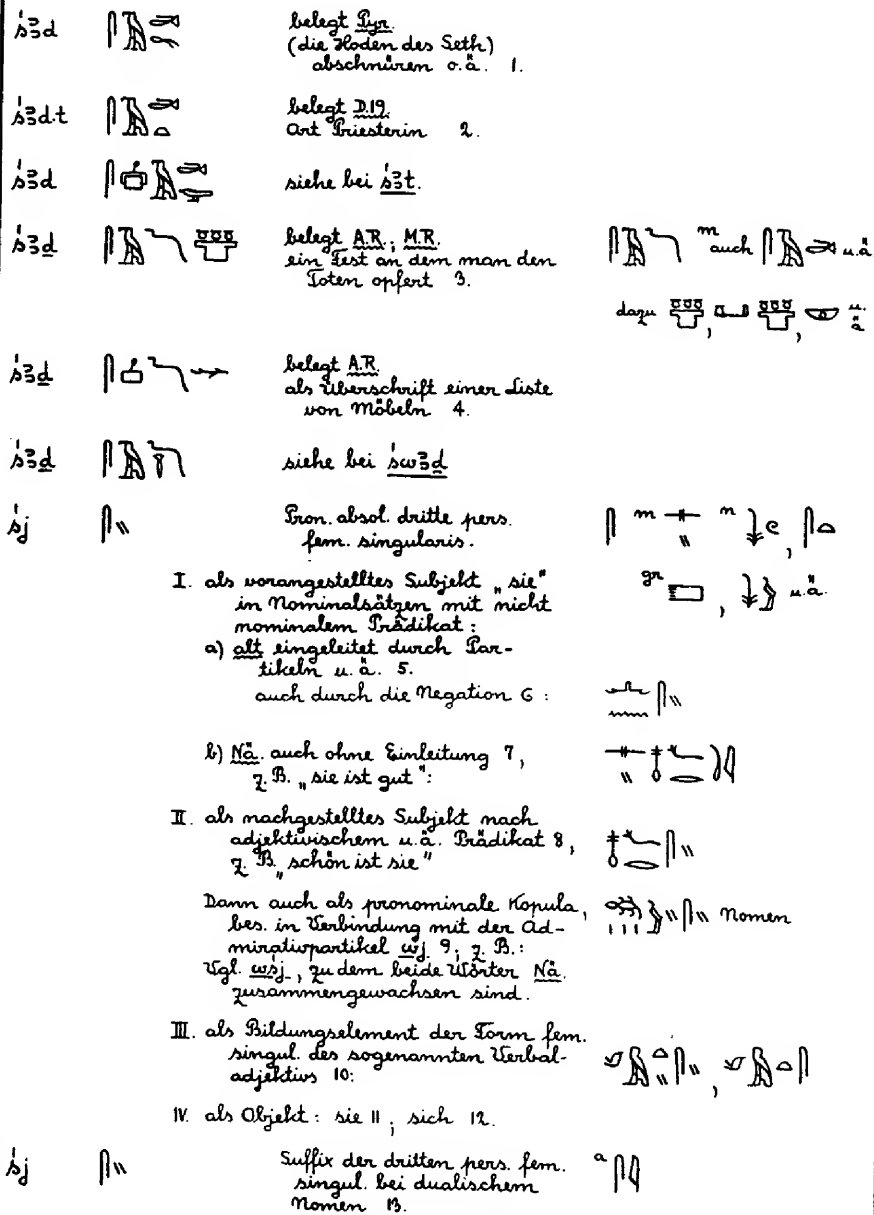 ś3d belegt Pyr.
(die Hoden des Seth)
abschnüren o.ä. 1.
ś3d.t belegt D.19.
Art Priesterin 2.
ś3d siehe bei ś3t.
ś3ḏ belegt A.R.; M.R. m auch u.ä.
ein Fest an dem man den
Toten opfert 3.
dazu , , u.ä.
ś3ḏ belegt A.R.
als Überschrift einer Liste
von Möbeln 4.
ś3ḏ siehe bei św3ḏ
śj Pron. absol. dritte pers. m n ,
fem. singularis.
I. als vorangestelltes Subjekt „sie" gr , u.ä.
in Nominalsätzen mit nicht
nominalem Prädikat:
a) alt eingeleitet durch Par-
tikeln u.ä. 5.
auch durch die Negation 6:
b) Nä. auch ohne Einleitung 7,
z.B. „sie ist gut":
II. als nachgestelltes Subjekt nach
adjektivischem u.ä. Prädikat 8,
z.B. „schön ist sie"
Dann auch als pronominale Kopula, Nomen
bes. in Verbindung mit der Ad-
mirativpartikel wj 9; z.B.:
Vgl. wśj, zu dem beide Wörter Nä.
zusammengewachsen sind.
III. als Bildungselement der Form fem.
singul. des sogenannten Verbal-
adjektivs 10: ,
IV. als Objekt: sie 11; sich 12.
śj Suffix der dritten pers. fem. a
singul. bei dualischem
Nomen 13.